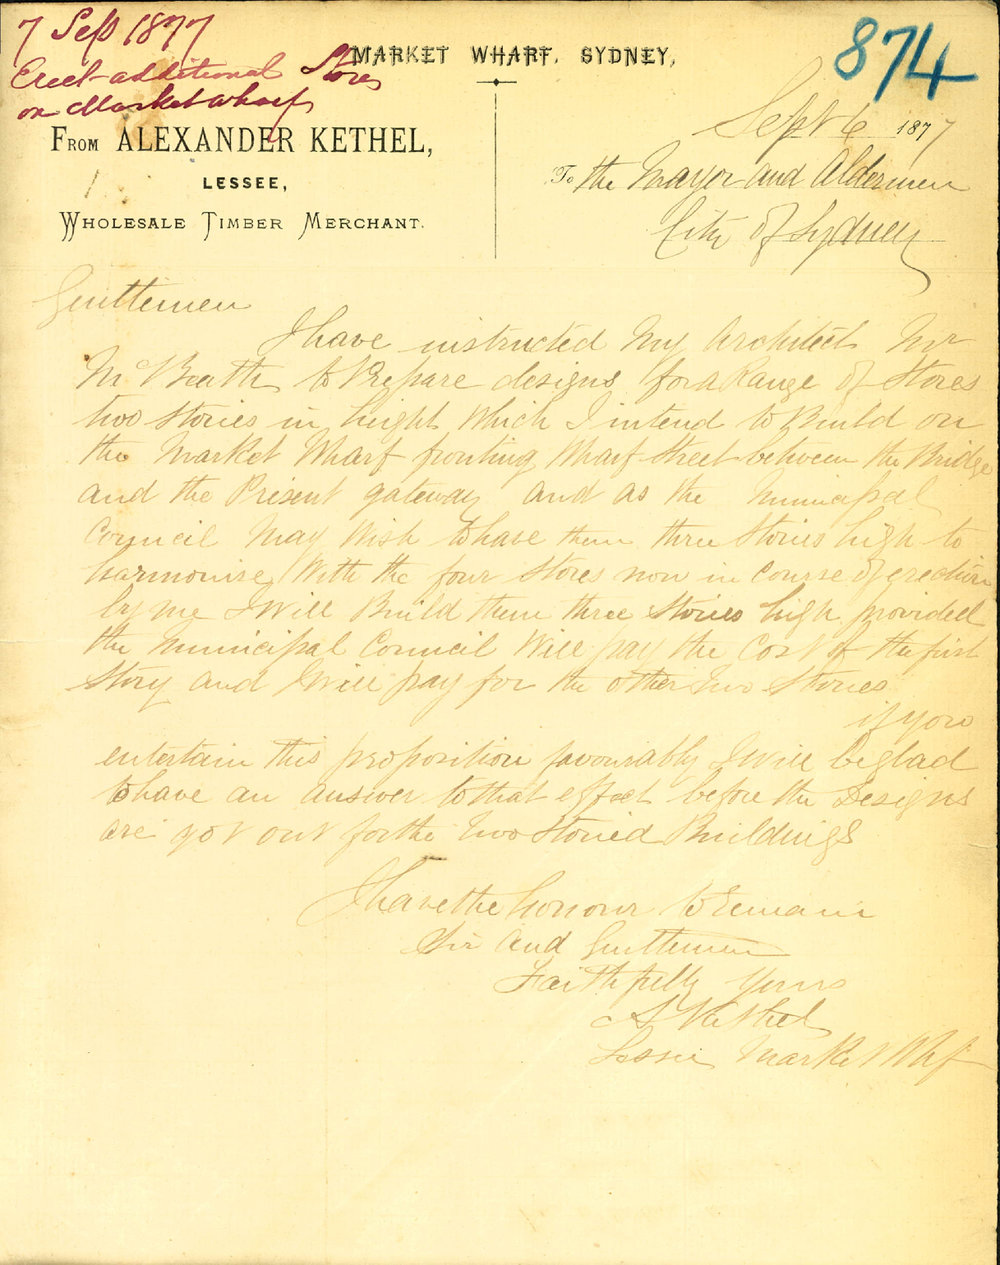 7 Sep 1877
Erect additional Stores
on Market wharf
874
MARKET WHARF, SYDNEY,
Sept 6 1877
FROM ALEXANDER KETHEL,
LESSEE,
WHOLESALE TIMBER MERCHANT.
To the Mayor and Aldermen
City of Sydney
Gentlemen
I have instructed My Architect Mr
McBeath to Prepare designs for a Range of Stores
two stories in height which I intend to Build on
the Market Wharf fronting Wharf Street between the Bridge
and the Present gateway and as the Municipal
Council May Wish to have them three Stories high to
harmonise With the four Stores now in course of erection
by me I Will Build them three Stories high provided
the Municipal Council Will pay the Cost of the first
Story and I will pay for the other two Stories
if you
entertain this proposition favourably I will be glad
to have an answer to that effect before the Designs
are got out for the two Storied Buildings
I have the honour to Remain
Sir and Gentlemen
Faithfully Yours
A Kethel
Lessee Market Whf